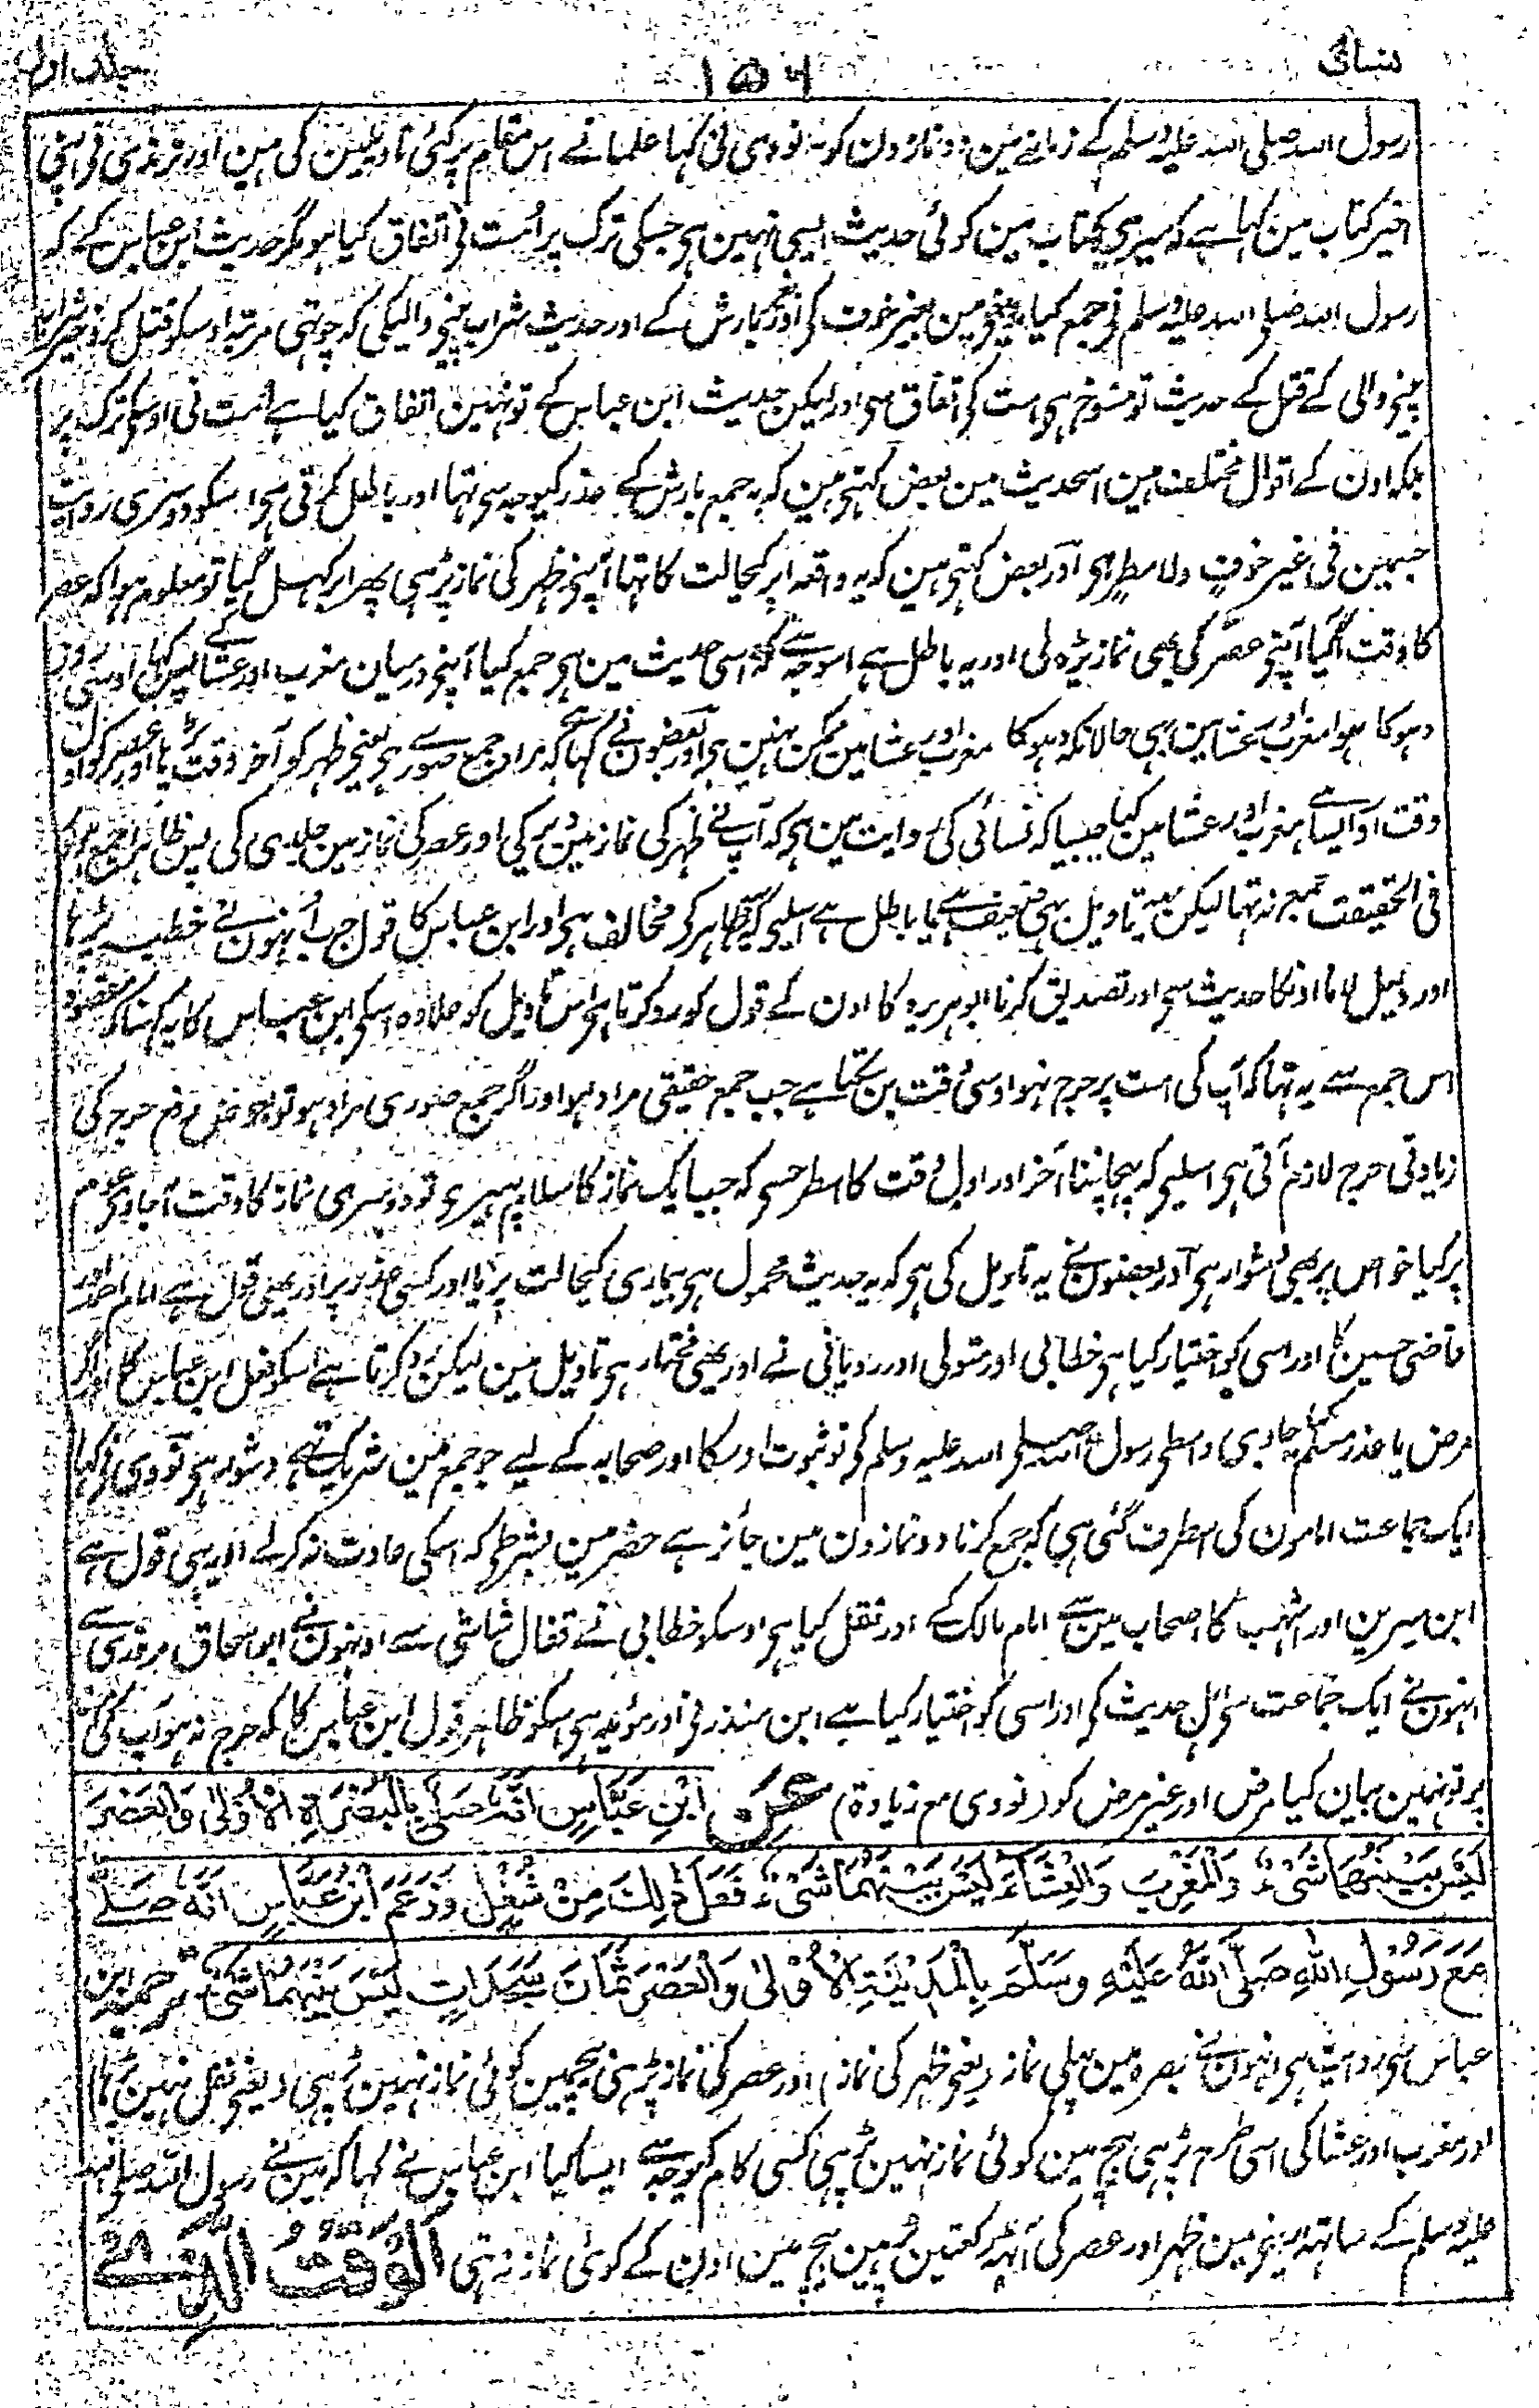 نسائی ۱۵۶ جلد اول
رسول اللہ صلی اللہ علیہ وسلم کے زمانے مین دو نمازون کو۔ نووی نی کہا علمانے اس مقام پر کئی تاویلین کی ہین اور ترمذی نی اپنی
اخیر کتاب مین کہا ہے کہ میری کتاب مین کوئی حدیث ایسی نہین ہی جسکی ترک پر اُمت نی اتفاق کیا ہو مگر حدیث ابن عباس کے کہ
رسول اللہ صلی اللہ علیہ وسلم نی جمع کیا مدینی مین بغیر خوف کی اور بارش کے اور حدیث شراب پینی والیکی کہ چوتہی مرتبہ اوسکو قتل کرو خیر شراب
پینی والی کے قتل کے حدیث تو منسوخ ہی امت کی اتفاق سی اور لیکن حدیث ابن عباس کے تو نہین اتفاق کیا ہے اُمت نی اوسکی ترک پر
بلکہ اون کے اقوال مختلف ہین اسحدیث مین بعض کہتی ہین کہ یہ جمع بارش کے عذر کیوجہ سی تہا اور باطل کرتی ہی اسکو دوسری روایت
جسمین فی غیر خوفٍ ولا مطرٍ ہی اور بعض کہتی ہین کہ یہ واقعہ ابر کیحالت کا تہا آپنی ظہر کی نماز پڑہی پھر ابر کہل گیا تو معلوم ہوا کہ عصر
کا وقت آگیا آپنی عصر کی بھی نماز پڑہ لی اور یہ باطل ہے اسوجہ سے کہ اسی حدیث مین ہی جمع کیا آپنی درمیان مغرب اور عشا کے پس کہا اوسی روز
دہوکا ہوا مغرب اور عشا مین بہی حالانکہ دہوکا مغرب اور عشا مین ممکن نہین ہی اور بعضون نے کہا کہ مراد جمع صوری ہی یعنی ظہر کو آخر وقت پڑہا اور عصر کو اول
وقت اور ایسا ہی مغرب اور عشا مین کیا جیسا کہ نسائی کی روایت مین ہی کہ آپ نے ظہر کی نماز مین دیر کی اور عصر کی نماز مین جلدی کی پس ظاہرا جمع ہوا
فی الحقیقت جمع نہ تہا لیکن یہ تاویل بہی ضعیف ہے یا باطل ہے اسلیے کہ ظاہر کی مخالف ہی اور ابن عباس کا قول جب اُنہون نے خطبہ پڑہا
اور دلیل لانا اونکا حدیث سی اور تصدیق کرنا ابوہریرہ کا اون کے قول کو رد کرتا ہی اس تاویل کو علاوہ اسکی ابن عباس کا یہ کہنا کہ مقصود
اس جمع سے یہ تہا کہ آپ کی امت پر حرج نہو اوسی وقت بن سکتا ہے جب جمع حقیقی مراد ہو اور اگر جمع صوری مراد ہو تو بعوض رفع حرج کی
زیادتی حرج لازم آتی ہی اسلیے کہ پہچاننا آخر اور اول وقت کا اسطرحسی کہ جب ایک نماز کا سلام پہیری تو دوسری نماز کا وقت آجاوی عوام
پر کیا خواص پر بھی دشوار ہی اور بعضون نے یہ تاویل کی ہی کہ یہ حدیث محمول ہی بیماری کیحالت پر یا اور کسی عذر پر اور یہی قول ہے امام احمد اور
قاضی حسین کا اور اسی کو اختیار کیا ہی خطابی اور متولی اور رویانی نے اور یہی مختار ہی تاویل مین لیکن رد کرتا ہے اسکو فعل ابن عباس کا اور اگر
مرض یا عذر مسلم کیا جاوی واسطی رسول اللہ صلی اللہ علیہ وسلم کی تو ثبوت اوسکا اور صحابہ کے لیے جو جمع مین شریک تہے دشوار ہی نووی نی کہا
ایک جماعت امامون کی اسطرف گئی ہی کہ جمع کرنا دو نمازون مین جائز ہے حضر مین بشرطیکہ اسکی عادت نہ کرلے اور یہی قول ہے
ابن سیرین اور اشہب کا اصحاب مین سے امام مالک کے اور نقل کیا ہی اوسکو خطابی نے قفال شاشی سے اونہون نے ابو اسحاق مروزی سے
انہون نے ایک جماعت سی اہل حدیث کی اور اسی کو اختیار کیا ہے ابن منذر نی اور مؤید ہی اسکو ظاہر قول ابن عباس کا کہ حرج نہ ہو آپ کی امت
پر تو نہین بیان کیا مرض اور غیر مرض کو (نووی مع زیادۃ) عَنِ ابْنِ عَبَّاسٍ اَنَّہٗ صَلّٰی بِالْبَصْرَۃِ الْاُوْلٰی وَالْعَصْرَ
لَیْسَ بَیْنَہُمَا شَیْءٌ وَالْمَغْرِبَ وَالْعِشَآءَ لَیْسَ بَیْنَہُمَا شَیْءٌ فَعَلَ ذٰلِکَ مِنْ شُغْلٍ وَزَعَمَ ابْنُ عَبَّاسٍ اَنَّہٗ صَلّٰے
مَعَ رَسُوْلِ اللّٰہِ صَلَّی اللّٰہُ عَلَیْہِ وَسَلَّمَ بِالْمَدِیْنَۃِ الْاُوْلٰی وَالْعَصْرَ ثَمَانَ سَجَدَاتٍ لَیْسَ بَیْنَہُمَا شَیْءٌ ترجمہ ابن
عباس سی روایت ہی انہون نے بصرہ مین پہلی نماز (یعنی ظہر کی نماز) اور عصر کی نماز پڑہی بیچمین کوئی نماز نہین پڑہی (یعنی نفل نہین پڑہا)
اور مغرب اور عشا کی اسی طرح پڑہی بیچ مین کوئی نماز نہین پڑہی کسی کام کیوجہ سے ایسا کیا ابن عباس نے کہا کہ مین نے رسول اللہ صلی اللہ
علیہ وسلم کے ساتہ مدینہ مین ظہر اور عصر کی آٹہہ رکعتین پڑہین بیچ مین اون کے کوئی نماز نہ تہی اَلْوَقْتُ الَّذِیْ